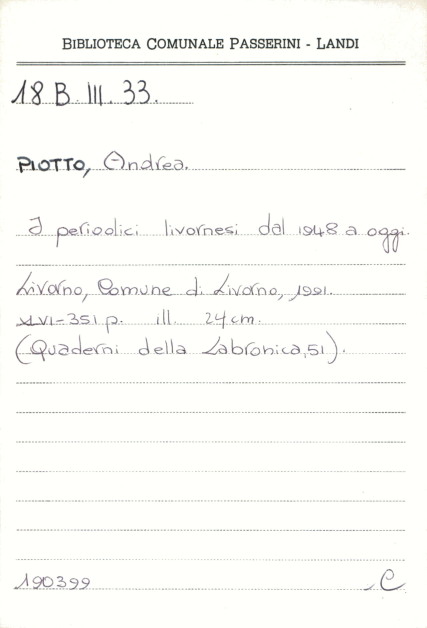 BIBLIOTECA COMUNALE PASSERINI - LANDI
18 B. III. 33.
PIOTTO, Andrea.
I periodici livornesi dal 1948 a oggi.
Livorno, Comune di Livorno, 1991.
XLVI-351 p. ill. 24 cm.
(Quaderni della Labronica, 51).
190399 C